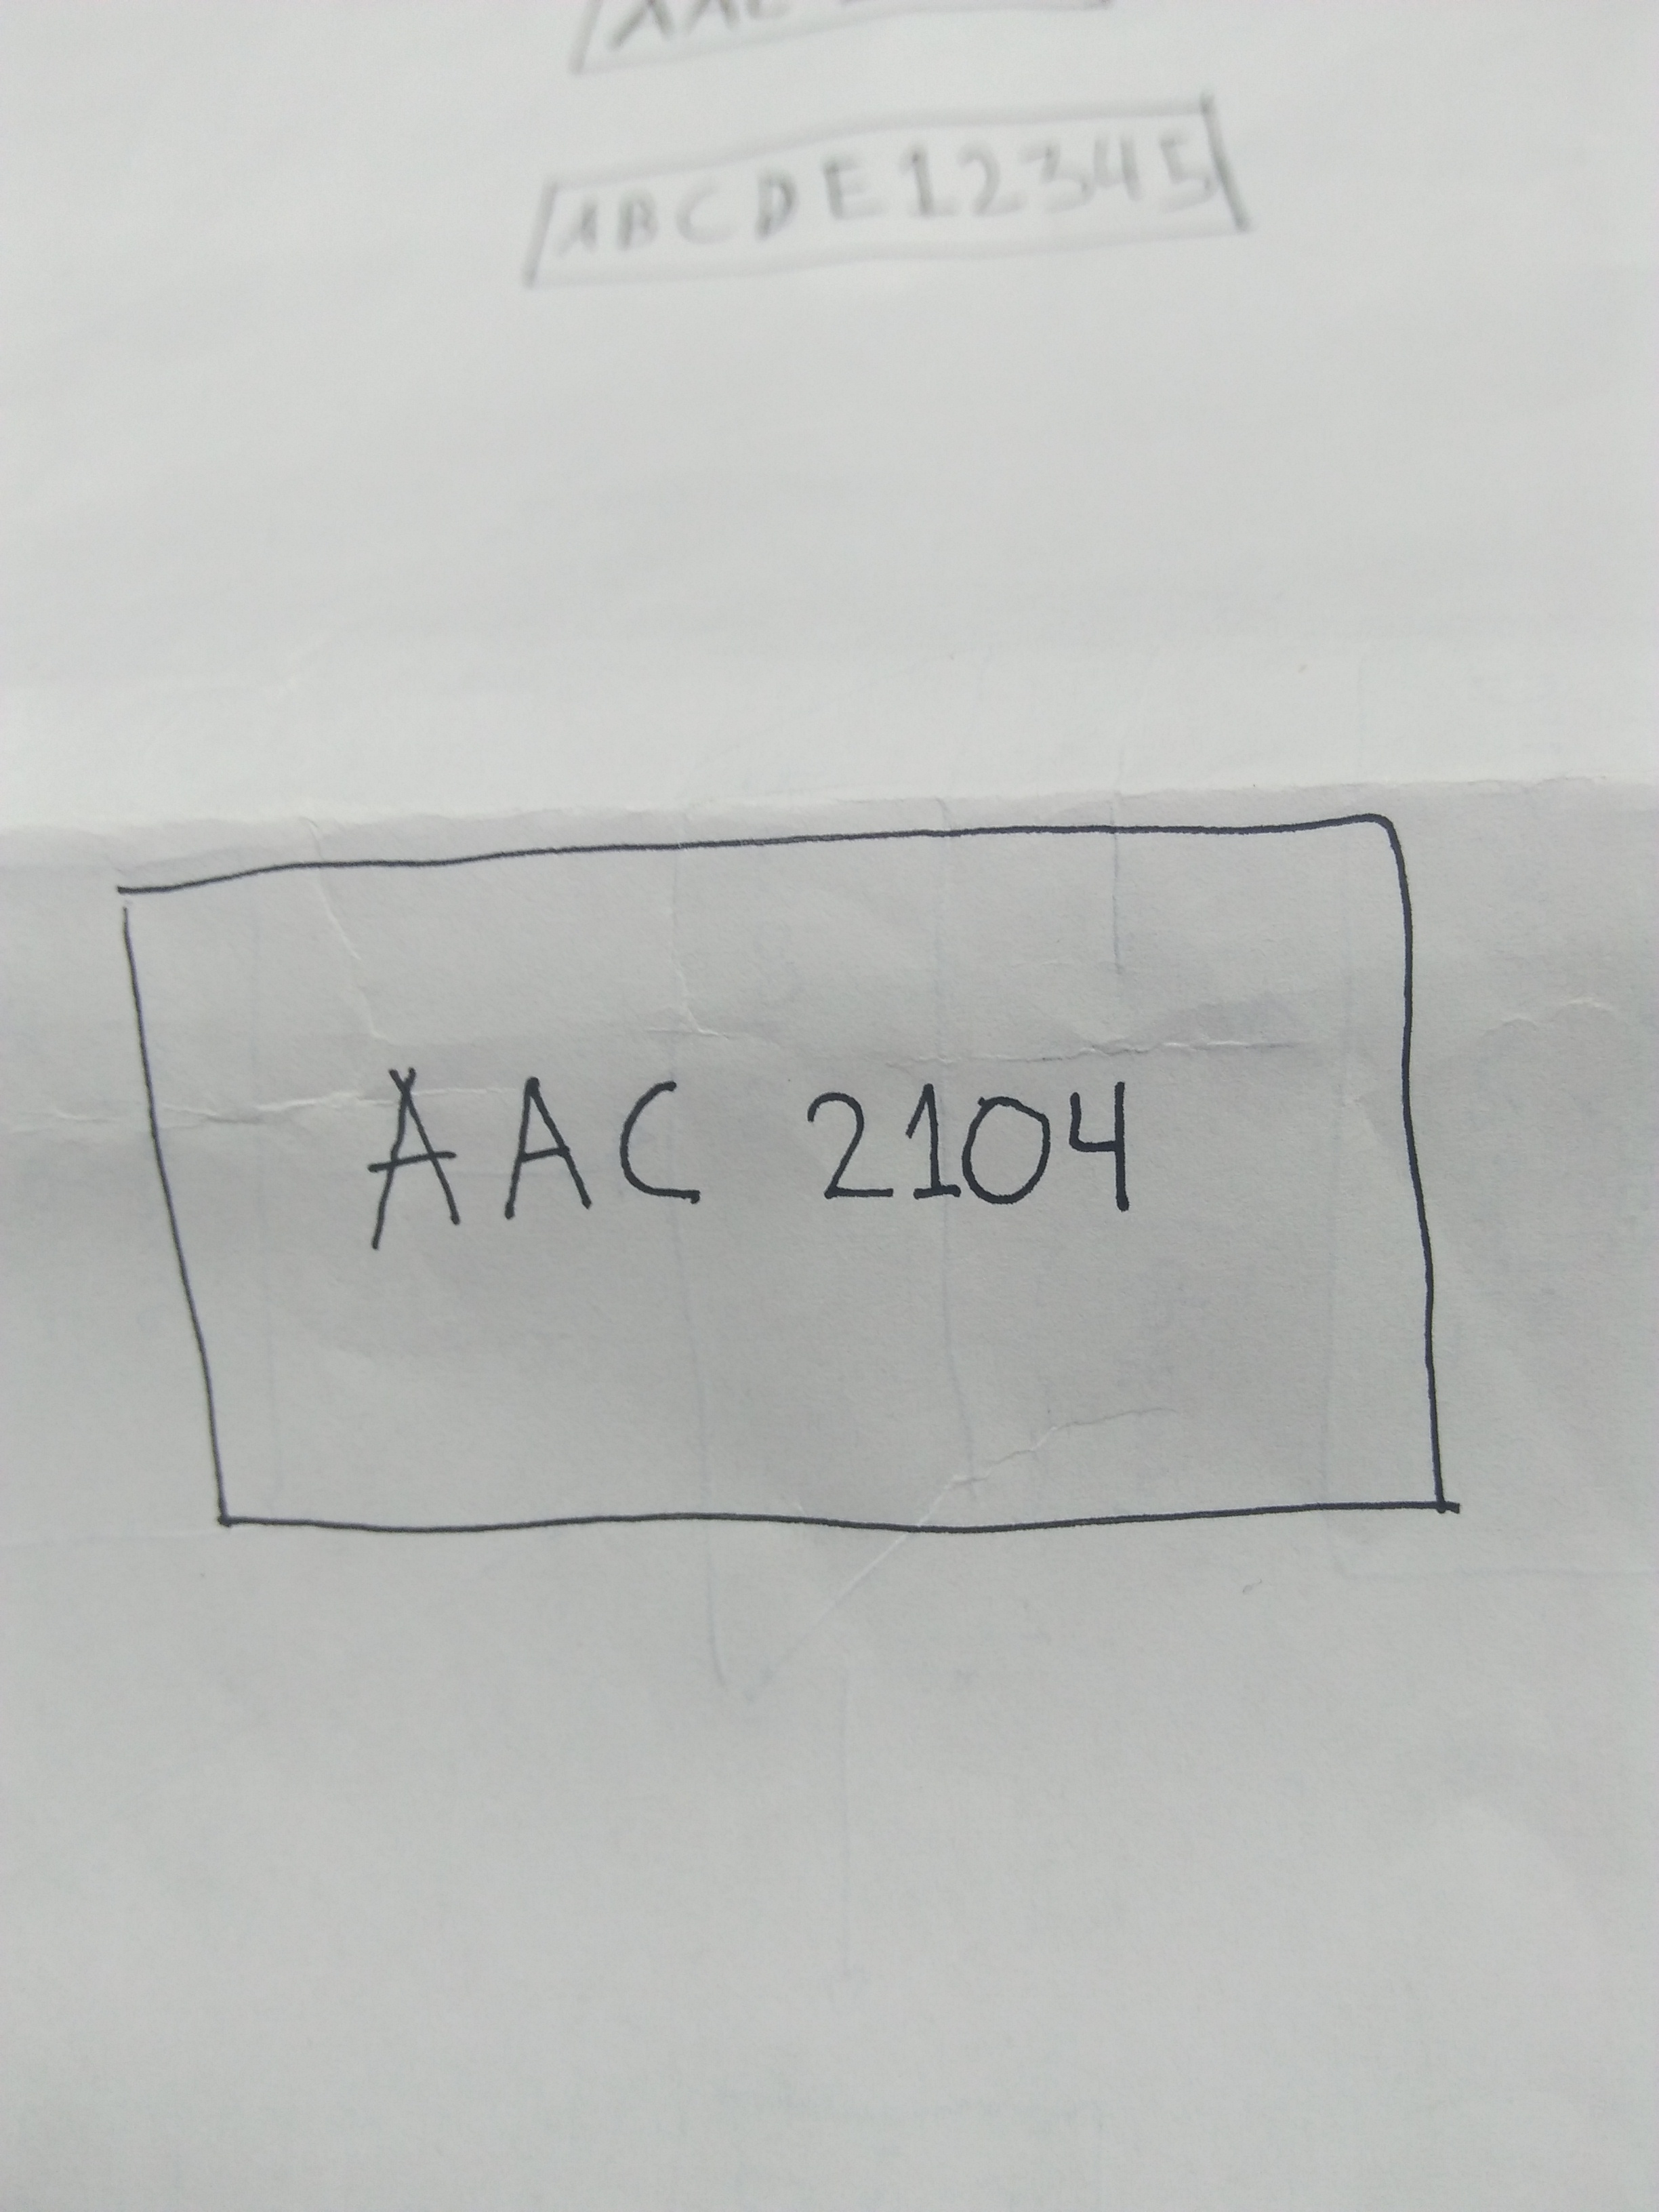 AAC
ABCDE12345
AAC 2104